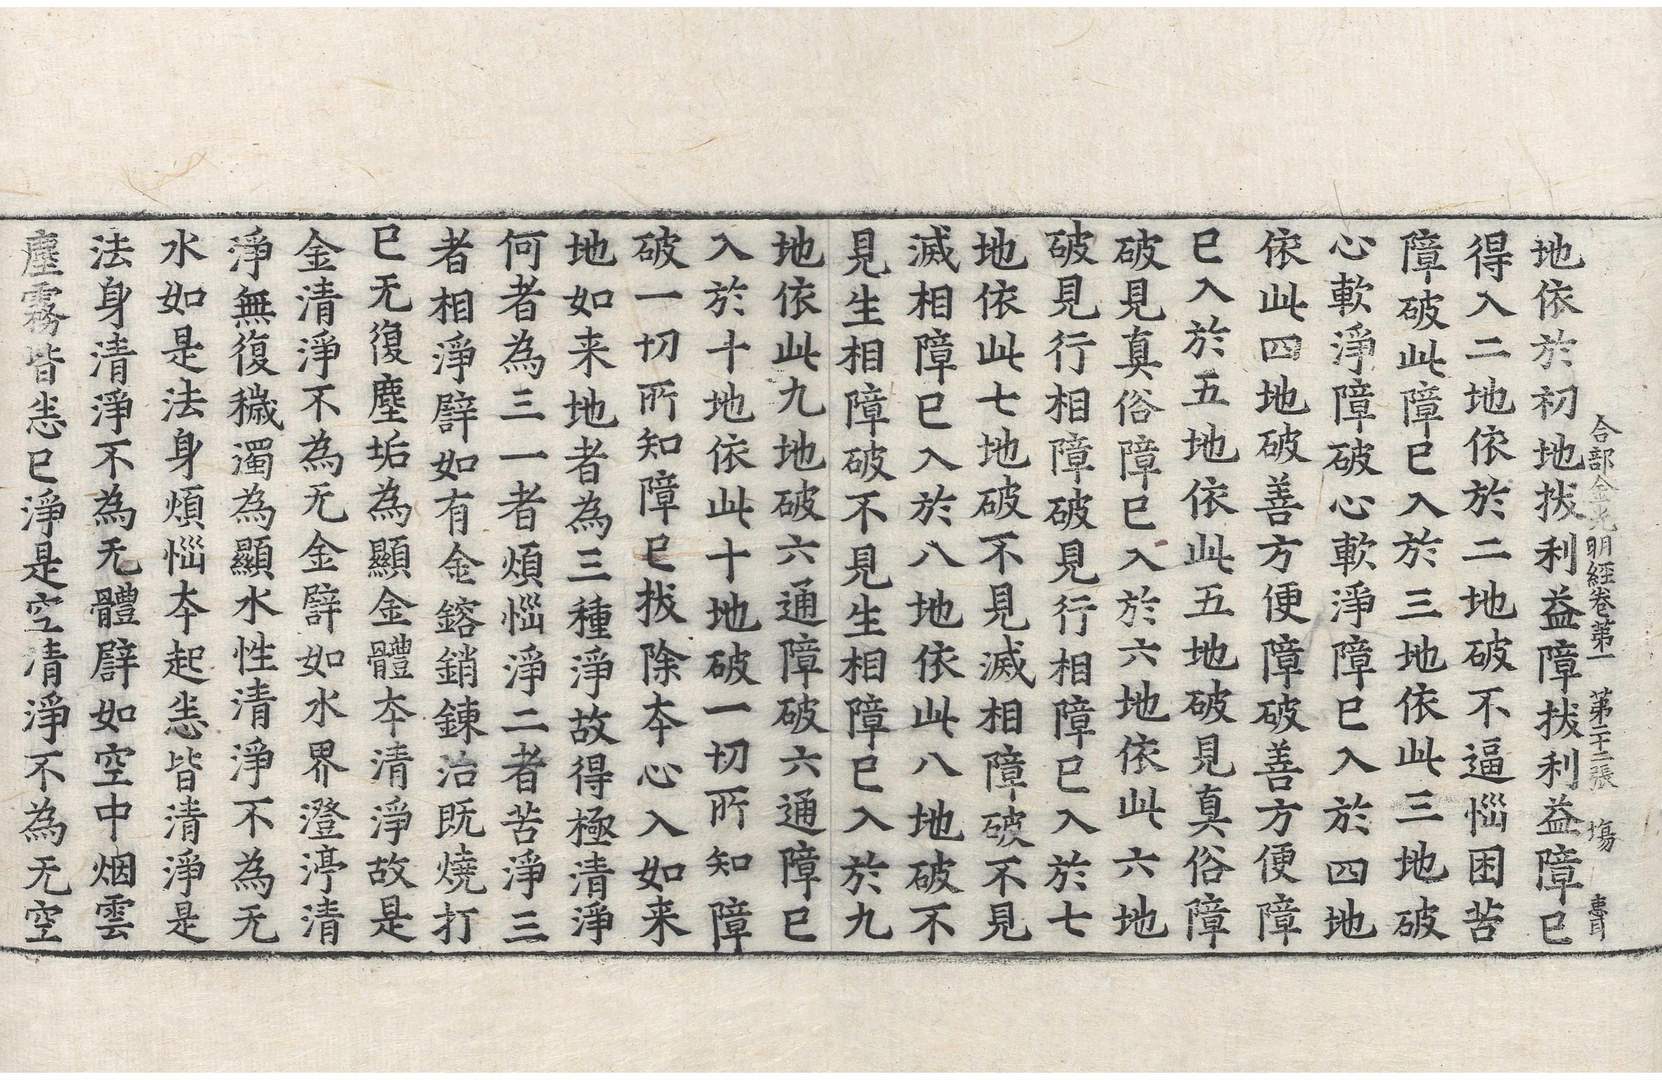 合部金光明經卷第一 第二十二張 塲
地依於初地拔利益障拔利益障已
得入二地依於二地破不逼惱困苦
障破此障已入於三地依此三地破
心軟淨障破心軟淨障已入於四地
依此四地破善方便障破善方便障
已入於五地依此五地破見真俗障
破見真俗障已入於六地依此六地
破見行相障破見行相障已入於七
地依此七地破不見滅相障破不見
滅相障已入於八地依此八地破不
見生相障破不見生相障已入於九
地依此九地破六通障破六通障已
入於十地依此十地破一切所知障
破一切所知障已拔除夲心入如来
地如来地者為三種淨故得極清淨
何者為三一者煩惱淨二者苦淨三
者相淨譬如有金鎔銷鍊治既燒打
已无復塵垢為顯金體夲清淨故是
金清淨不為无金譬如水界澄渟清
淨無復穢濁為顯水性清淨不為无
水如是法身煩惱夲起悉皆清淨是
法身清淨不為无體譬如空中烟雲
塵霧皆悉已淨是空清淨不為无空